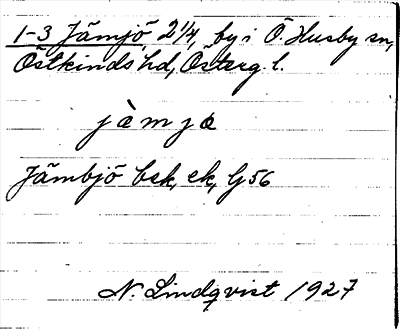 1-3 Jämjö 2 1/4, by i Ö. Husby sn,
Östkinds hd, Österg. l.
jàmjα
Jämbjö bek, ek, G 56
N. Lindqvist 1927